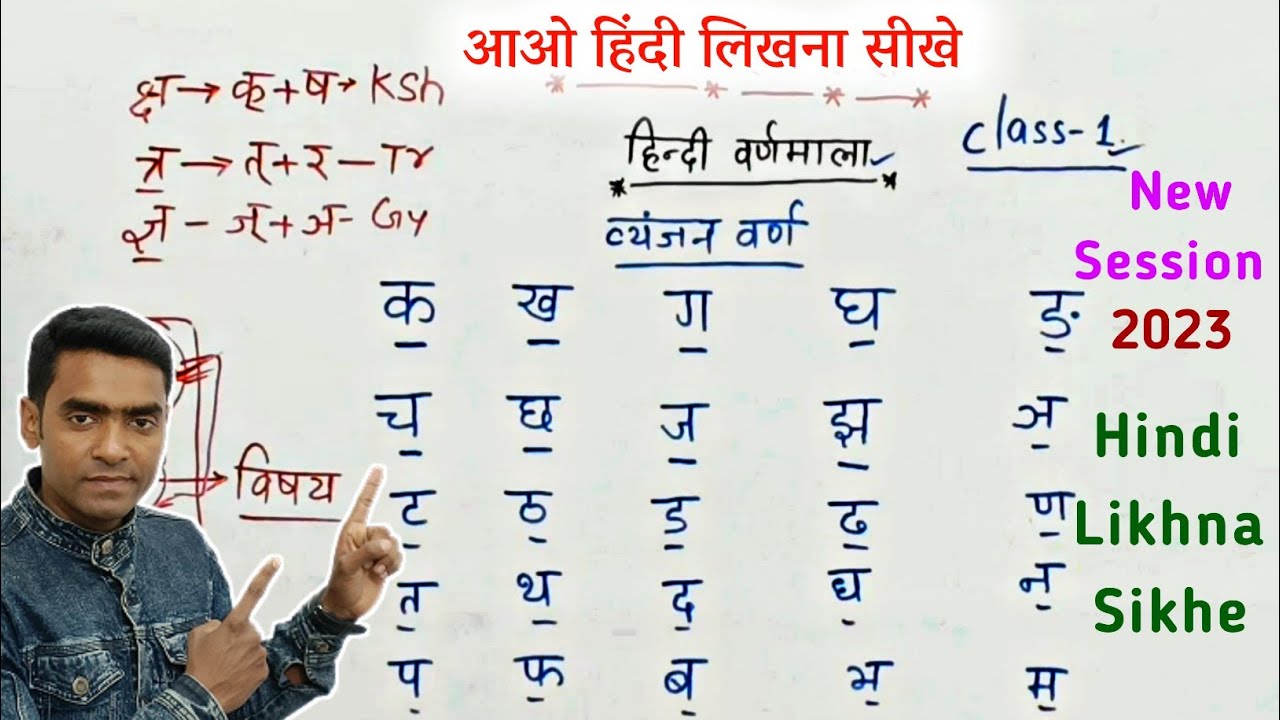 आओ हिंदी लिखना सीखे
क्ष → क् + ष → KSh
त्र → त् + र - Tr
ज्ञ - ज् + ञ - Gy
हिन्दी वर्णमाला
Class-1.
व्यंजन वर्ण
New
Session
2023
क ख ग घ ङ
च छ ज झ ञ
ट ठ ड ढ ण
त थ द ध न
प फ ब भ म
विषय
Hindi
Likhna
Sikhe